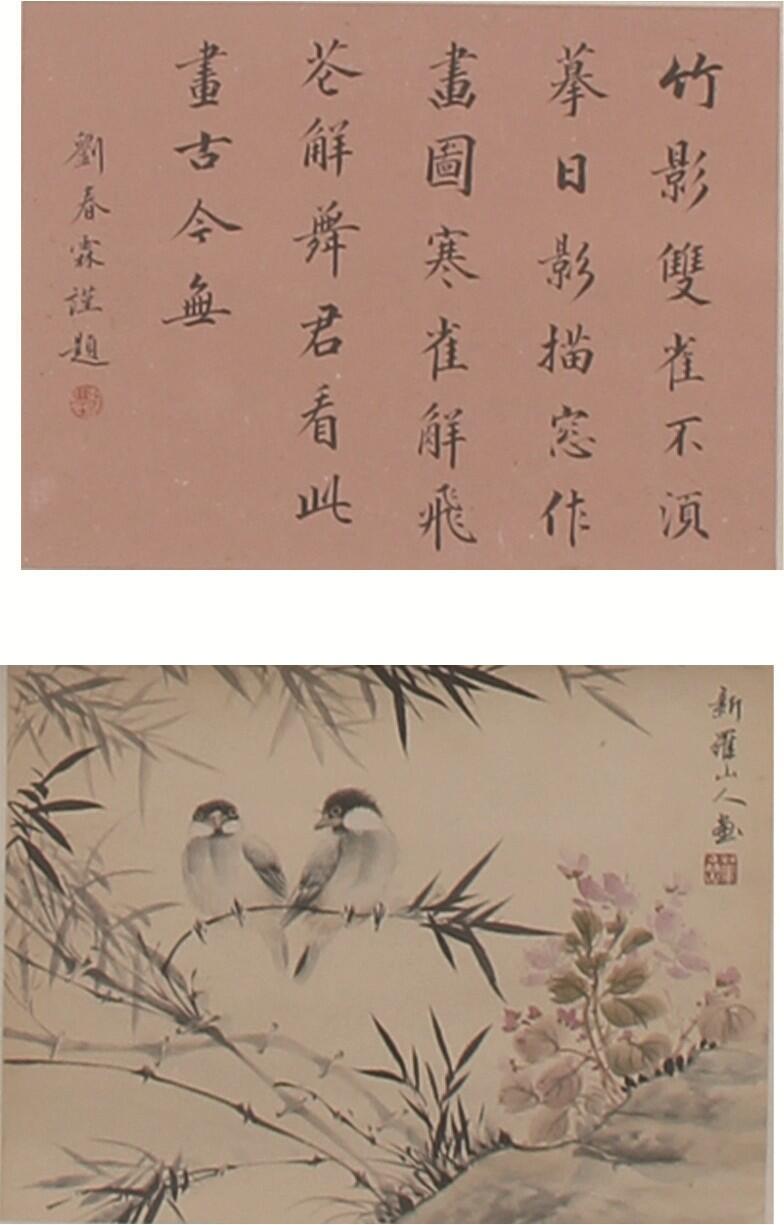 竹影雙雀不須
摹日影描窓作
畫圖寒雀解飛
花解舞君看此
畫古今無
劉春霖謹題
新羅山人畫